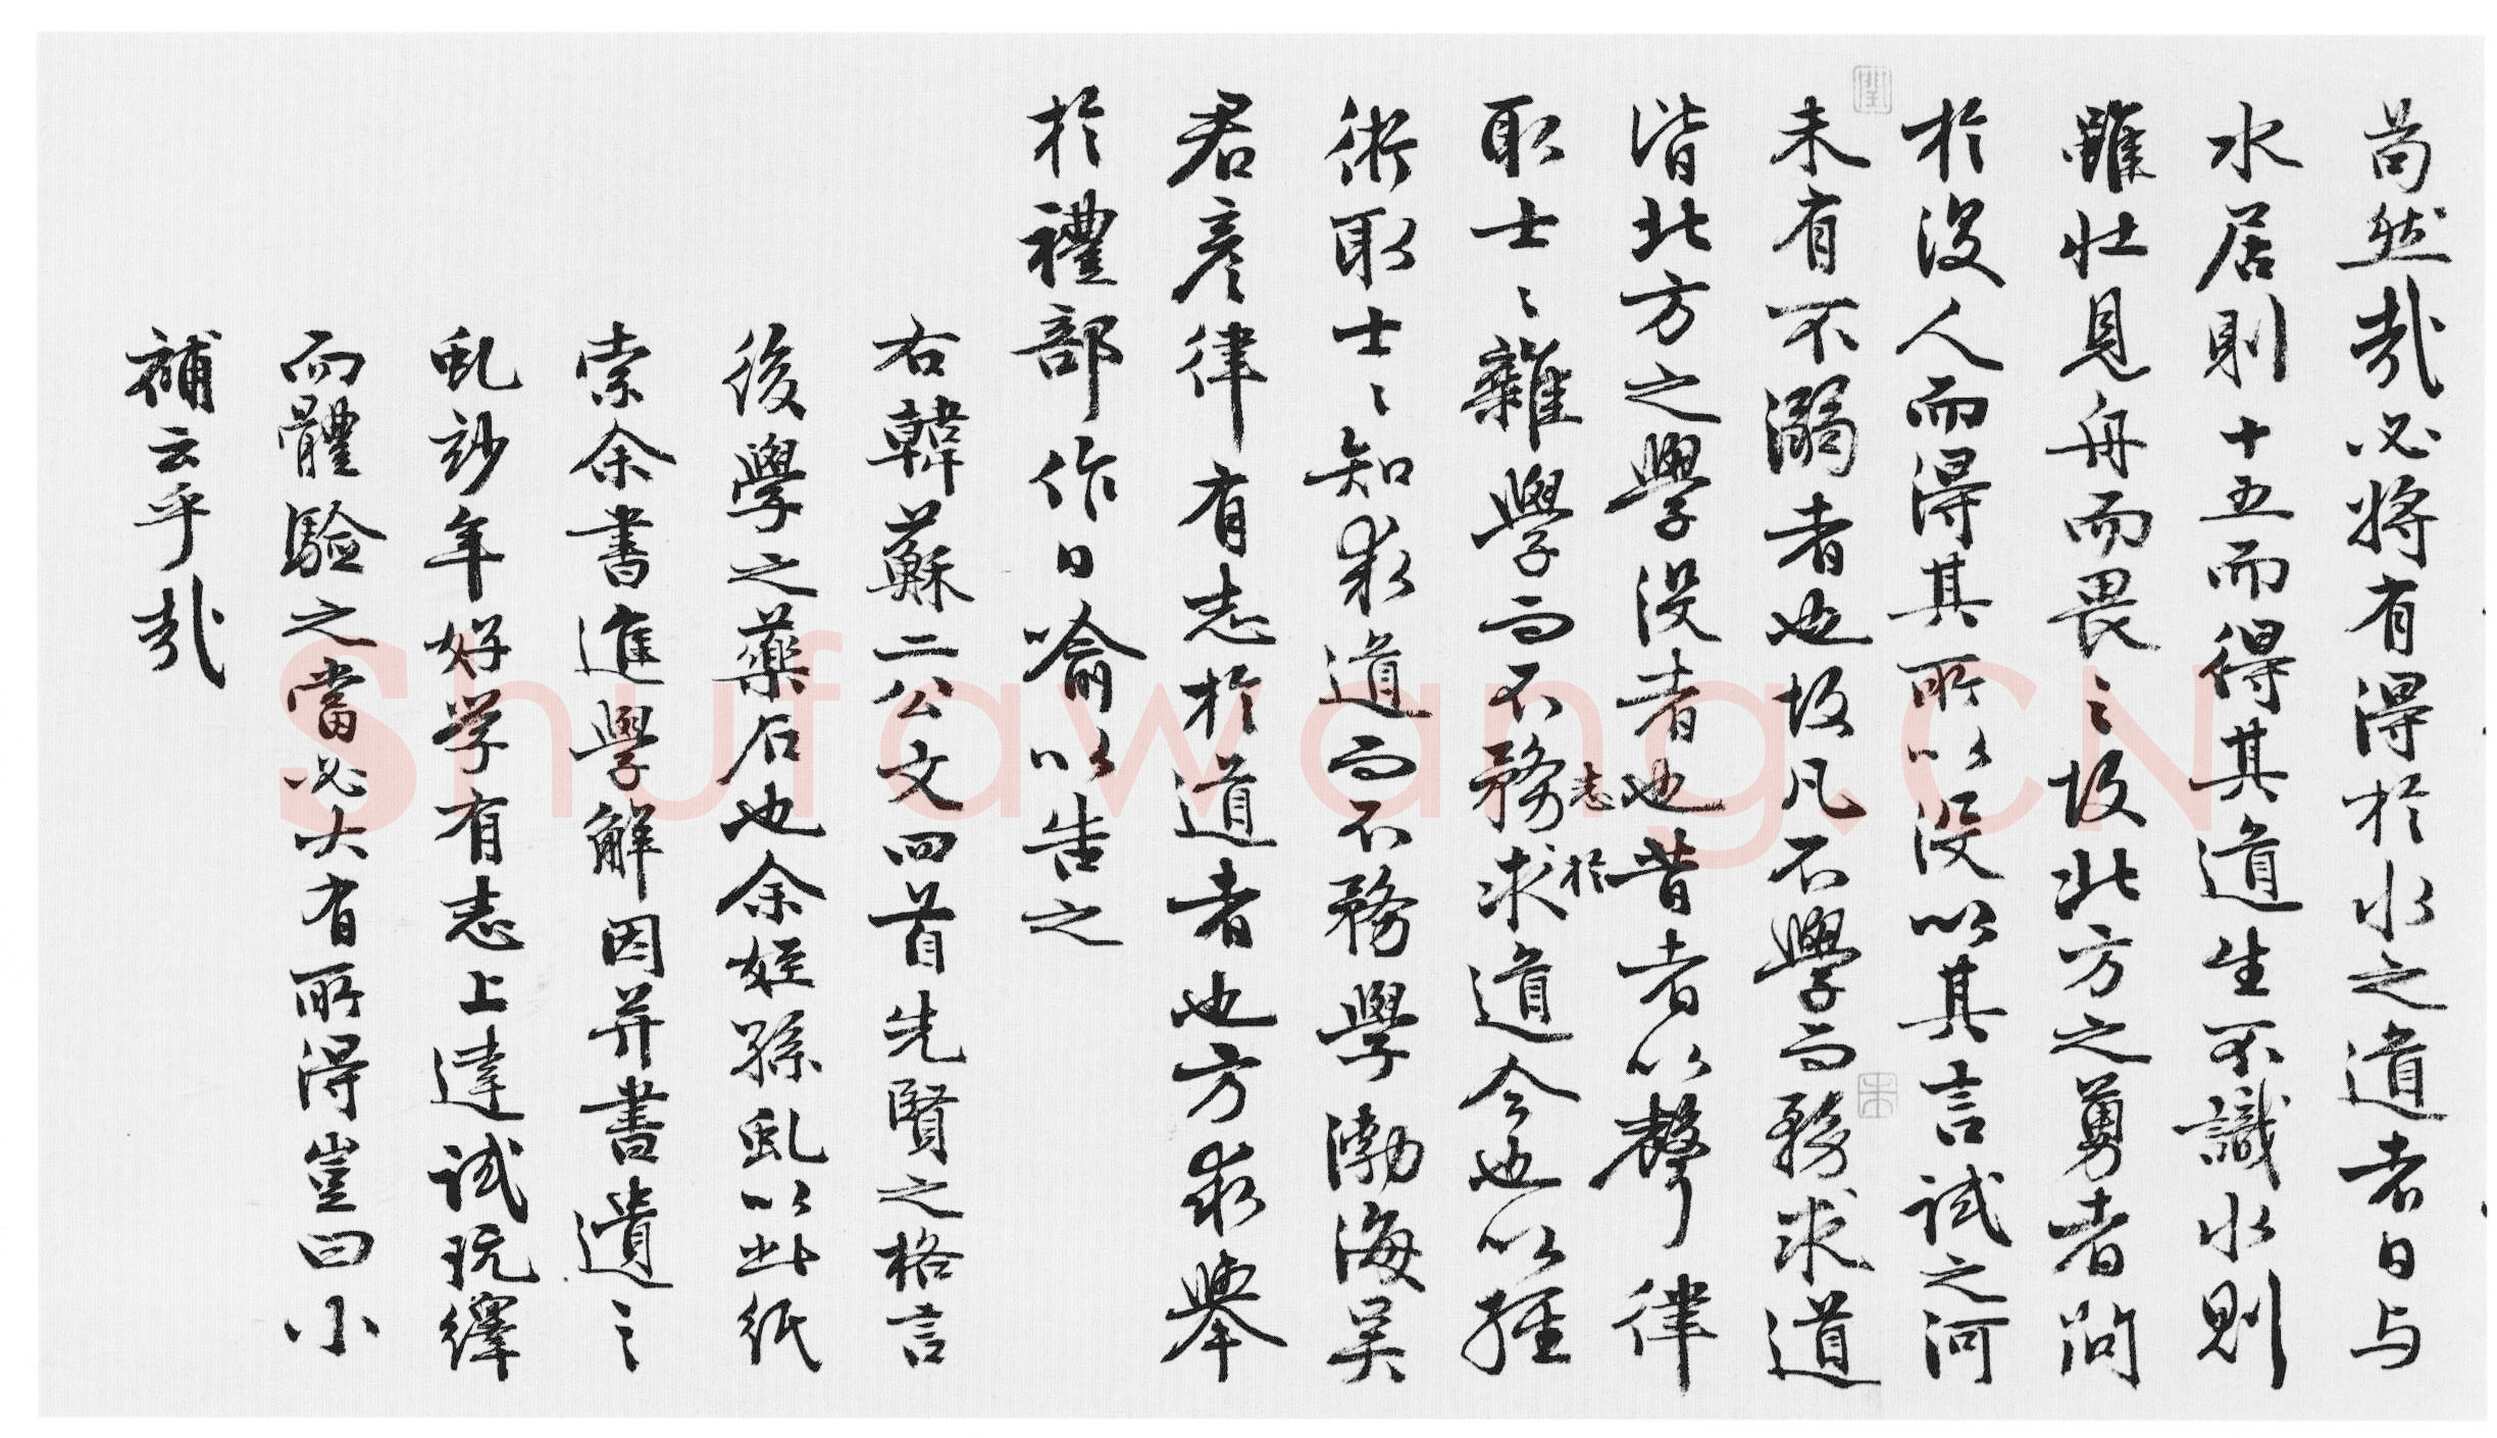 苟然哉必將有得於水之道者日与
水居則十五而得其道生不識水則
雖壯見舟而畏之故北方之勇者問
於没人而得其所以没以其言試之河
未有不溺者也故凡不學而務求道
皆北方之學没者也昔者以聲律
取士士雜學而不務求道今也以經
志於
術取士士知求道而不務學渤海吴
君彦律有志於道者也方求舉
於禮部作日喻以告之
右韓蘇二公文四首先賢之格言
後學之藥石也余姪孫虬以此紙
索余書進學解因并書遺之
虬妙年好学有志上達試玩繹
而體驗之當必大有所得豈曰小
補云乎哉
Shufawang.CN